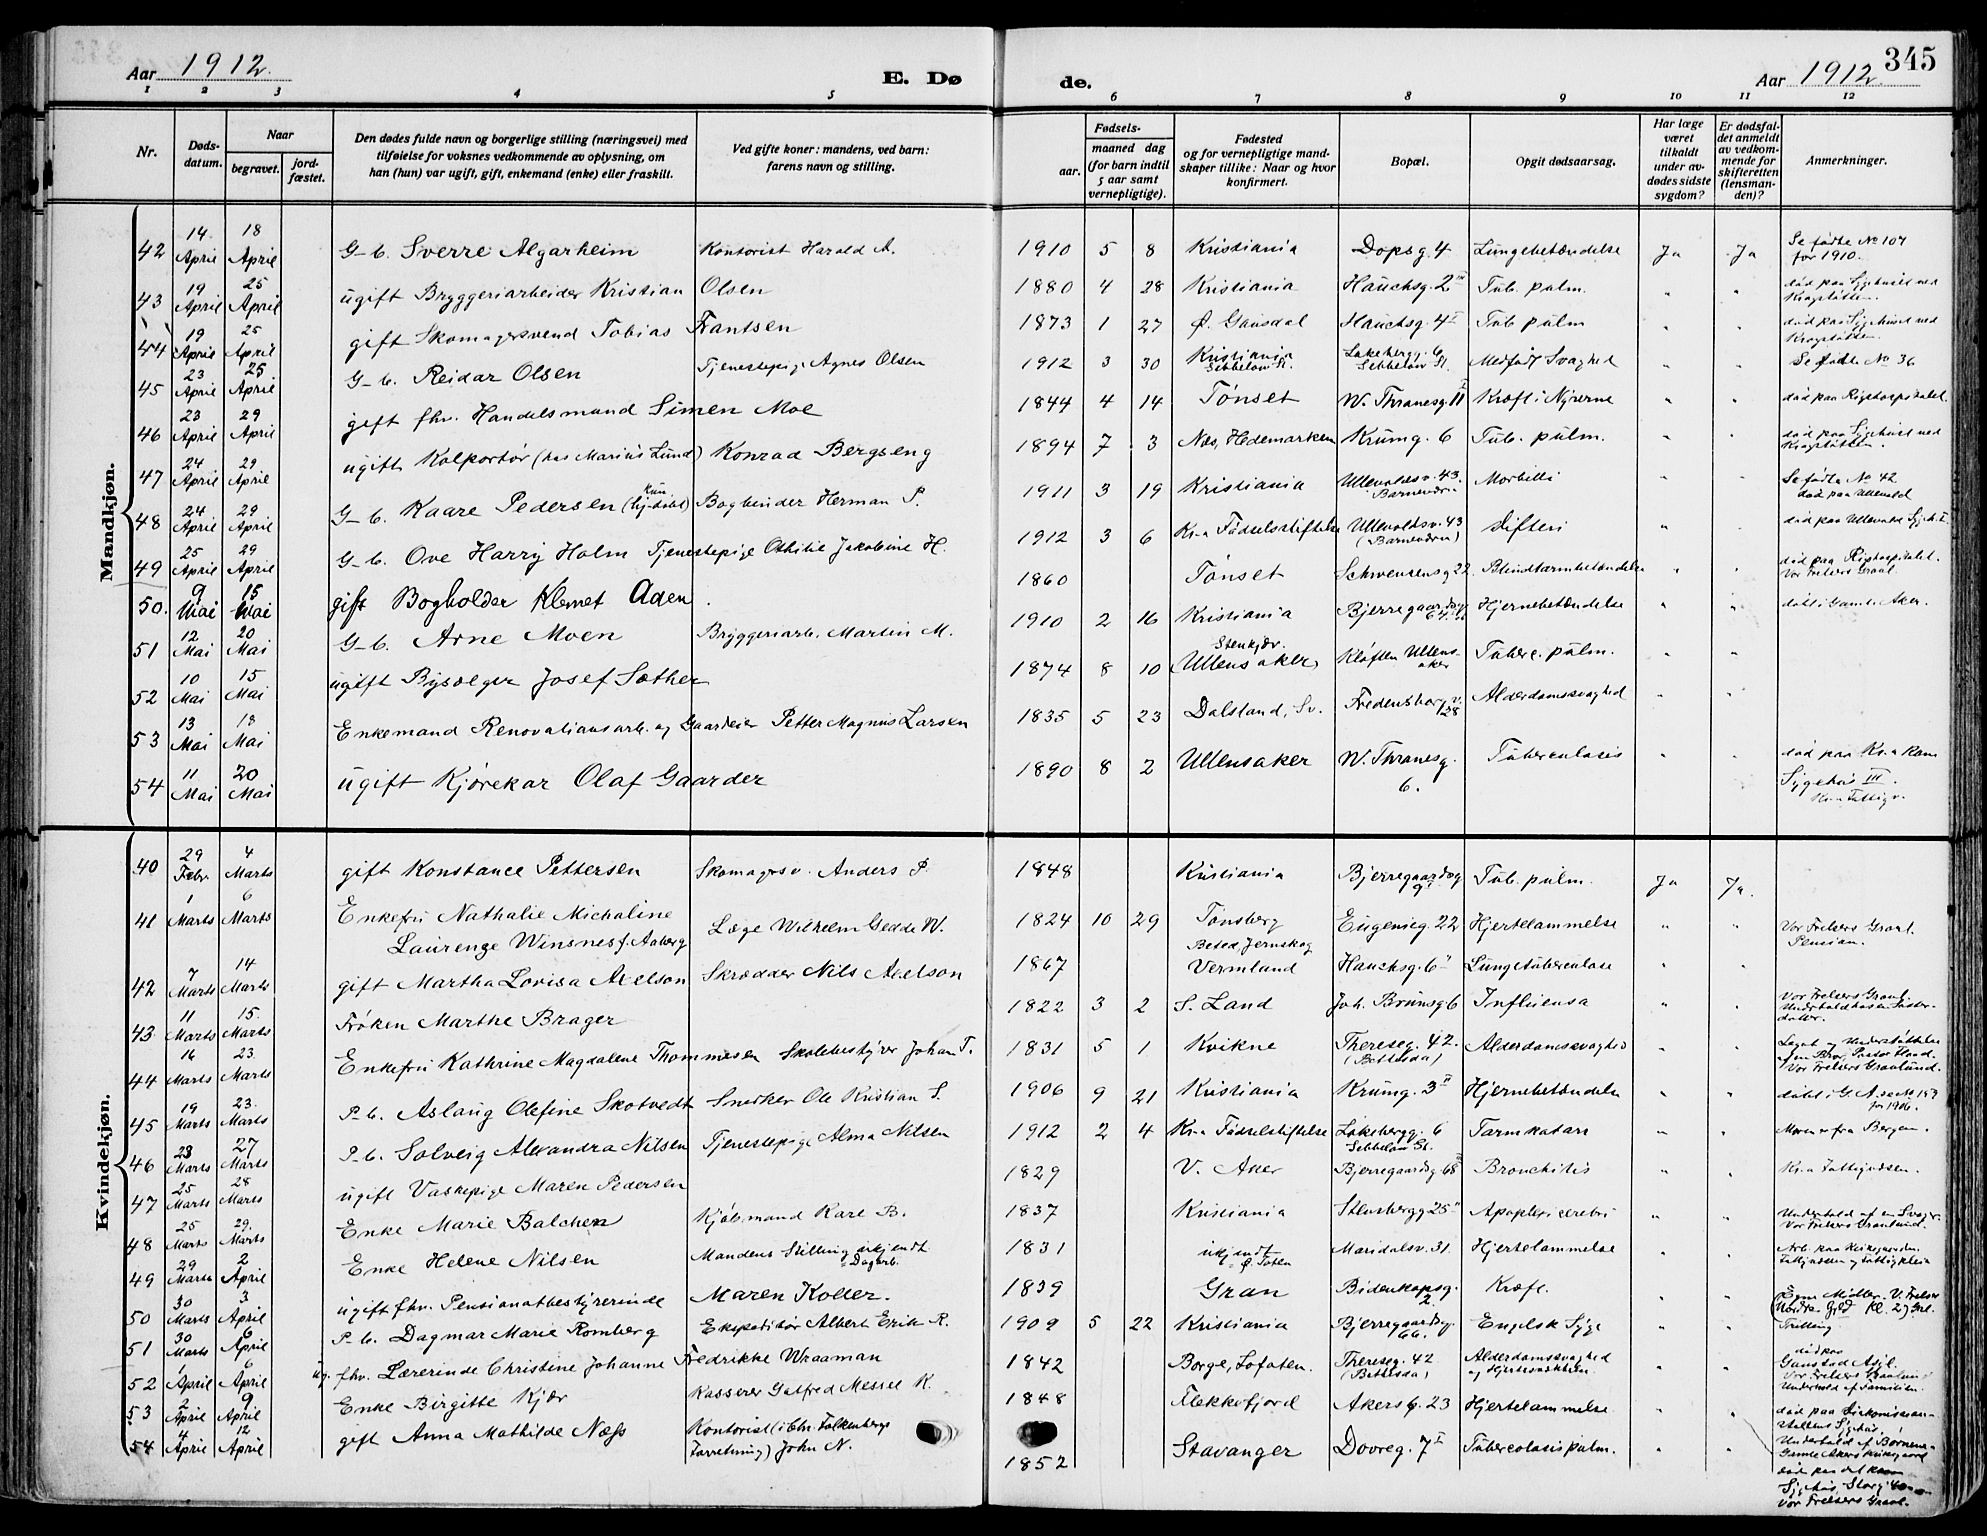 Aar 1912.
E. Dø
de.
Aar 1912.
345
1 2 3 4 5 6 7 8 9 10 11 12
Nr.
Døds-datum.
Naar
begravet.
jord-fæstet.
Den dødes fulde navn og borgerlige stilling (næringsvei) med
tilføielse for voksnes vedkommende av oplysning, om
han (hun) var ugift, gift, enkemand (enke) eller fraskilt.
Ved gifte koner: mandens, ved barn:
farens navn og stilling.
Fødsels-
aar. maaned dag
(for barn indtil
5 aar samt
vernepligtige).
Fødested
og for vernepligtige mand-
skaper tillike: Naar og hvor
konfirmert.
Bopæl.
Opgit dødsaarsag.
Har læge
været
tilkaldt
under av-
dødes sidste
sygdom?
Er dødsfal-
det anmeldt
av vedkom-
mende for
skifteretten
(lensman-
den)?
Anmerkninger.
Mandkjøn.
42 14 April 18 April G-b. Sverre Algarheim Kontorist Harald A. 1910 5 8 Kristiania Dopsg. 4 Lungebetændelse Ja Ja Se fødte No 107 for 1910.
43 19 April 25 April ugift Bryggeriarbeider Kristian Olsen 1880 4 28 Kristiania Hauchsg. 2 Tub. pulm. " " død paa Sygehuset ved Krogstøtten.
44 19 April 25 April gift Skomagersvend Tobias Frantsen 1873 1 27 Ø. Gausdal Hauchsg. 4 I Tub pulm " " død paa Sygehuset ved Krogstøtten.
45 23 April 25 April G-b. Reidar Olsen Tjenestepige Agnes Olsen 1912 3 30 Kristiania Sebbelow St. Lakkegg. 6 Sebbelow St. Medfødt Svaghed " " Se fødte No 36
46 23 April 29 April gift fhv. Handelsmand Simen Moe 1844 4 14 Tønset W. Thranesg. 11 Kræft i Nyrerne " " død paa Rigshospitalet.
47 24 April 29 April ugift Kolportør (hos Marius Lund) Konrad Bergseng 1894 7 3 Næs, Hedemarken Krumg. 6 Tub. pulm. " " død paa Sygehuset ved Krogstøtten.
48 24 April 29 April G-b. Kaare Pedersen (kun hjdøbt) Bogbinder Herman P. 1911 3 19 Kristiania Ullevoldsv. 43. Barneværn Morbilli " " Se fødte No 42 død paa Ullevold
49 25 April 29 April G-b. Ove Harry Holm Tjenestepige Othilie Jakobine H. 1912 3 6 Kr.a Fødselsstiftelse Ullevoldsv. 43 (Barneværn) Difteri " død paa Ullevold Sygeh.
50. 9 Mai 15 Mai gift Bogholder Klemet Aden. 1860 Tønset Schwensensg 22 Blindtarmbetændelse " " død paa Rigshospitalet. Vor Frelsers Gravl.
51 12 Mai 20 Mai G-b. Arne Moen Bryggeriarb. Martin M. 1910 2 16 Kristiania Bjerregaardsg 64 Hjernebetændelse " " døbt i Gamle Aker.
52 10 Mai 15 Mai ugift Bysælger Josef Sæther 1874 8 10 Stenkjær. Ullensaker, Kløften Ullensaker Tuberc. pulm. " "
53 13 Mai 18 Mai Enkemand Renovationsarb. og Gaardeier Petter Magnus Larsen 1835 5 23 Dalsland, Sv. Fredensborgv. 28 Alderdomssvaghed " "
54 11 Mai 20 Mai ugift Kjørekar Olaf Gaarder 1890 8 2 Ullensaker W. Thranesg. 6. Tuberculosis " " død paa Kr.a Kom Sygehus III. Kr.a Fattigv.
Kvindekjøn.
40 29 Febr. 4 Marts gift Konstance Pettersen Skomagersv. Anders P. 1848 Kristiania Bjerregaardsg 9 Tub. pulm. Ja Ja.
41 1 Marts 6 Marts Enkefru Nathalie Michaline Laurenze Winsnes f. Aaberg Læge Wilhelm Gedde W. 1824 10 29 Tønsberg Eugenieg. 22 Hjertelammelse " " Vor Frelsers Gravl. Pension.
42 7 Marts 14 Marts gift Martha Lovisa Axelson Skrædder Nils Axelson 1867 Jernskog Vermland Hauchsg. 6 Lungetuberculose " "
43 11 Marts 15. Marts Frøken Marthe Brager 1822 3 2 S. Land Joh. Brunsg 6 Influensa " " Vor Frelsers Gravl.
44 16 Marts 23. Marts Enkefru Kathrine Magdalene Thommesen Skolebestyrer Johan T. 1831 5 1 Kvikne Thereseg. 42. (Bethesda) Alderdomssvaghed " " Legat og Understøttelse af en Bror, Vor Frelsers Gravlund.
45 19 Marts 23. Marts P-b. Aslaug Olefine Skotvedt Snekker Ole Kristian S. 1906 9 21 Kristiania Krumg. 3 II Hjernebetændelse " " døbt i G. A. se No 157 for 1906.
46 23 Marts 27 Marts P-b. Solveig Alexandra Nilsen Tjenestepige Alma Nilsen 1912 2 4 Kr.a Fødselstiftelse Lakkegg. 6 Sebbelow St. Tarmkatarr " " Moren fra Bergen.
47 25 Marts 28 Marts ugift Vaskepige Maren Pedersen 1829 V. Aker Bjerregaardsg 68 Bronchitis " " Kr.a Fattigvæsen.
48 25 Marts 29. Marts Enke Marie Balchen Kjøbmand Kare B. 1837 Kristiania Stensbergg 25 Apoplexi cerebri " " Underhold af en Svoger. Vor Frelsers Gravlund.
49 29 Marts 2 April Enke Helene Nilsen Mandens Stilling ukjendt Dagarb. 1831 ukjendt Ø. Toten Maridalsv. 31. Hjertelammelse " "
50 30 Marts 3 April ugift fhv. Pensionatbestyrerinde Maren Koller. 1839 Gran Bidenkapsg. 2. Kræft. " "
51 30 Marts 6 April P-b. Dagmar Marie Romberg Ekspeditør Albert Erik R. 1909 5 22 Kristiania Bjerregaardsg. 66. Engelsk Syge " " Trilling
52 1 April 6 April ug. fhv. Lærerinde Christine Johanne Fredrikke Wraaman 1842 Borge, Lofoten. Thereseg. 42 (Bethesda) Alderdomssvaghed og Hjertesvækkelse " " død paa Gaustad Asyl. Vor Frelsers Gravlund Underhold af Familien.
53 2 April 9 April Enke Birgitte Kjær Kasserer Gatfred Messel K. 1848 Flekkefjord Akersg. 23 Hjertelammelse " " død paa Diakonissean-staltens Sygehus, Underhold af Børnene. Gamle Akers Kirkegaard
54 4 April 12 April gift Anna Mathilde Næss Kontorist (i Chr. Falkenbergs Forretning) John N. 1852 Stavanger Dovreg. 7 I Tuberculosis pulm. " " død paa det kom Sygehus, Storg 40 Vor Frelsers Gravl.